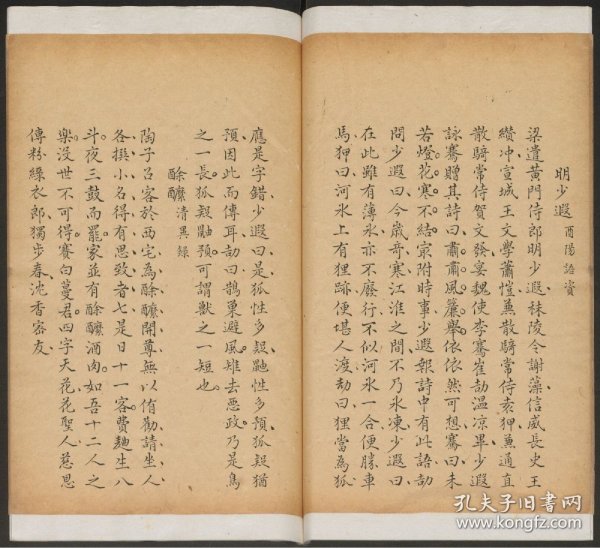 明少遐 酉陽語資
梁遣黃門侍郎明少遐秣陵令謝藻信威長史王
纘冲宣城王文學蕭愷兼散騎常侍袁狎兼通直
散騎常侍賀文發宴魏使李騫崔劼温凉畢少遐
詠騫贈其詩曰蕭蕭風簾舉依依然可想騫曰未
若燈花寒不結最附時事少遐報詩中有此語劼
問少遐曰今歲奇寒江淮之間不乃氷凍少遐曰
在此雖有薄氷亦不廢行不似河氷一合便勝車
馬狎曰河氷上有狸跡便堪人渡劼曰狸當為狐
應是字錯少遐曰是狐性多疑鼬性多預狐疑猶
預因此而傳耳劼曰鵲巢避風雉去惡政乃是鳥
之一長狐疑鼬預可謂獸之一短也
酴醾 清異錄
陶子召客於西宅為酴醾開尊無以侑勸請坐人
各撰小名得有思致者七是日十一客費麯生八
斗夜三鼓而罷家並有酴醾酒肉如吾十二人之
樂没世不可得賽白蔓君四字天花花聖人慈恩
傅粉綠衣郎獨步春沈香密友
孔夫子旧書网
www.kongfz.com